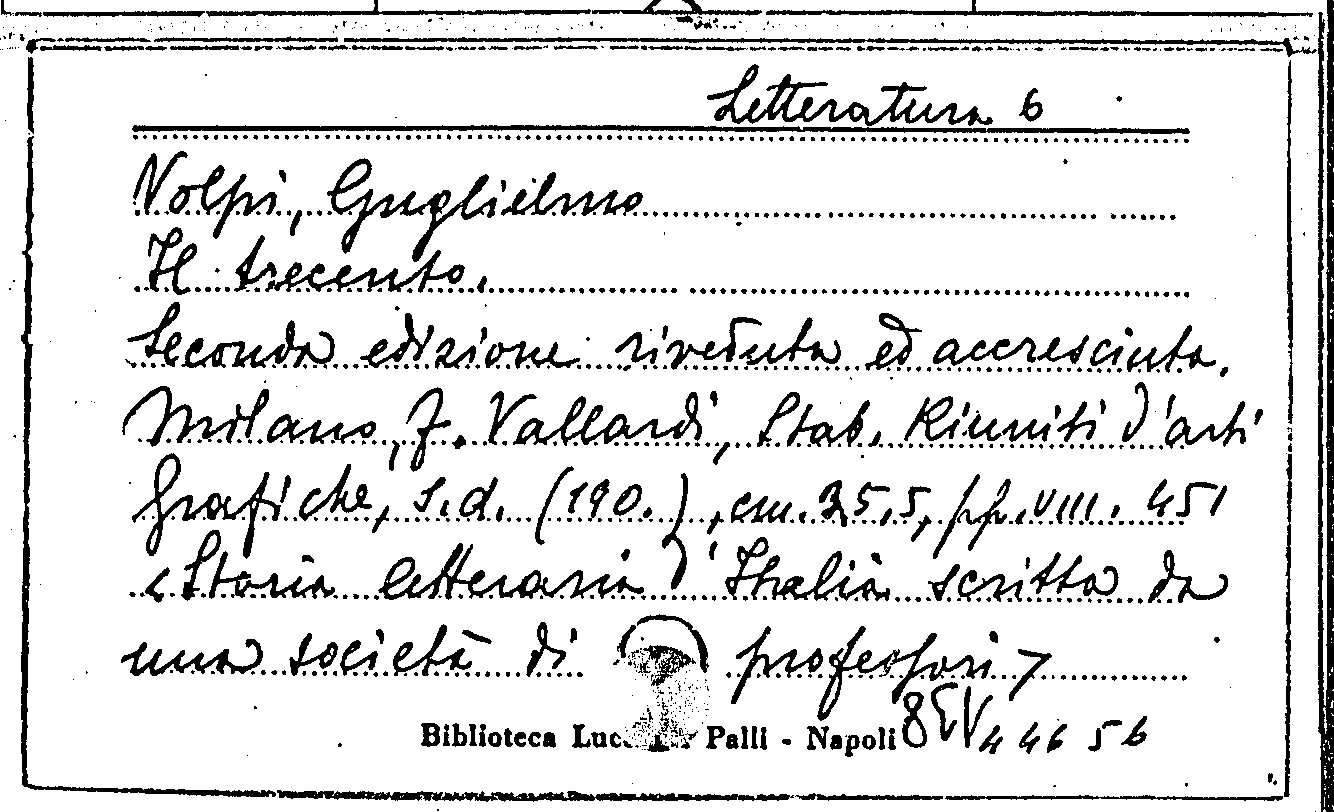 Letteratura 6
Volpi, Guglielmo
Il trecento.
Seconda edizione riveduta ed accresciuta.
Milano, F. Vallardi, Stab. Riuniti d'arti
Grafiche, s.d. (190.), cm. 25,5, pp. VIII. 451
<Storia letteraria d'Italia scritta da
una società di professori>
Biblioteca Palli - Napoli
44656